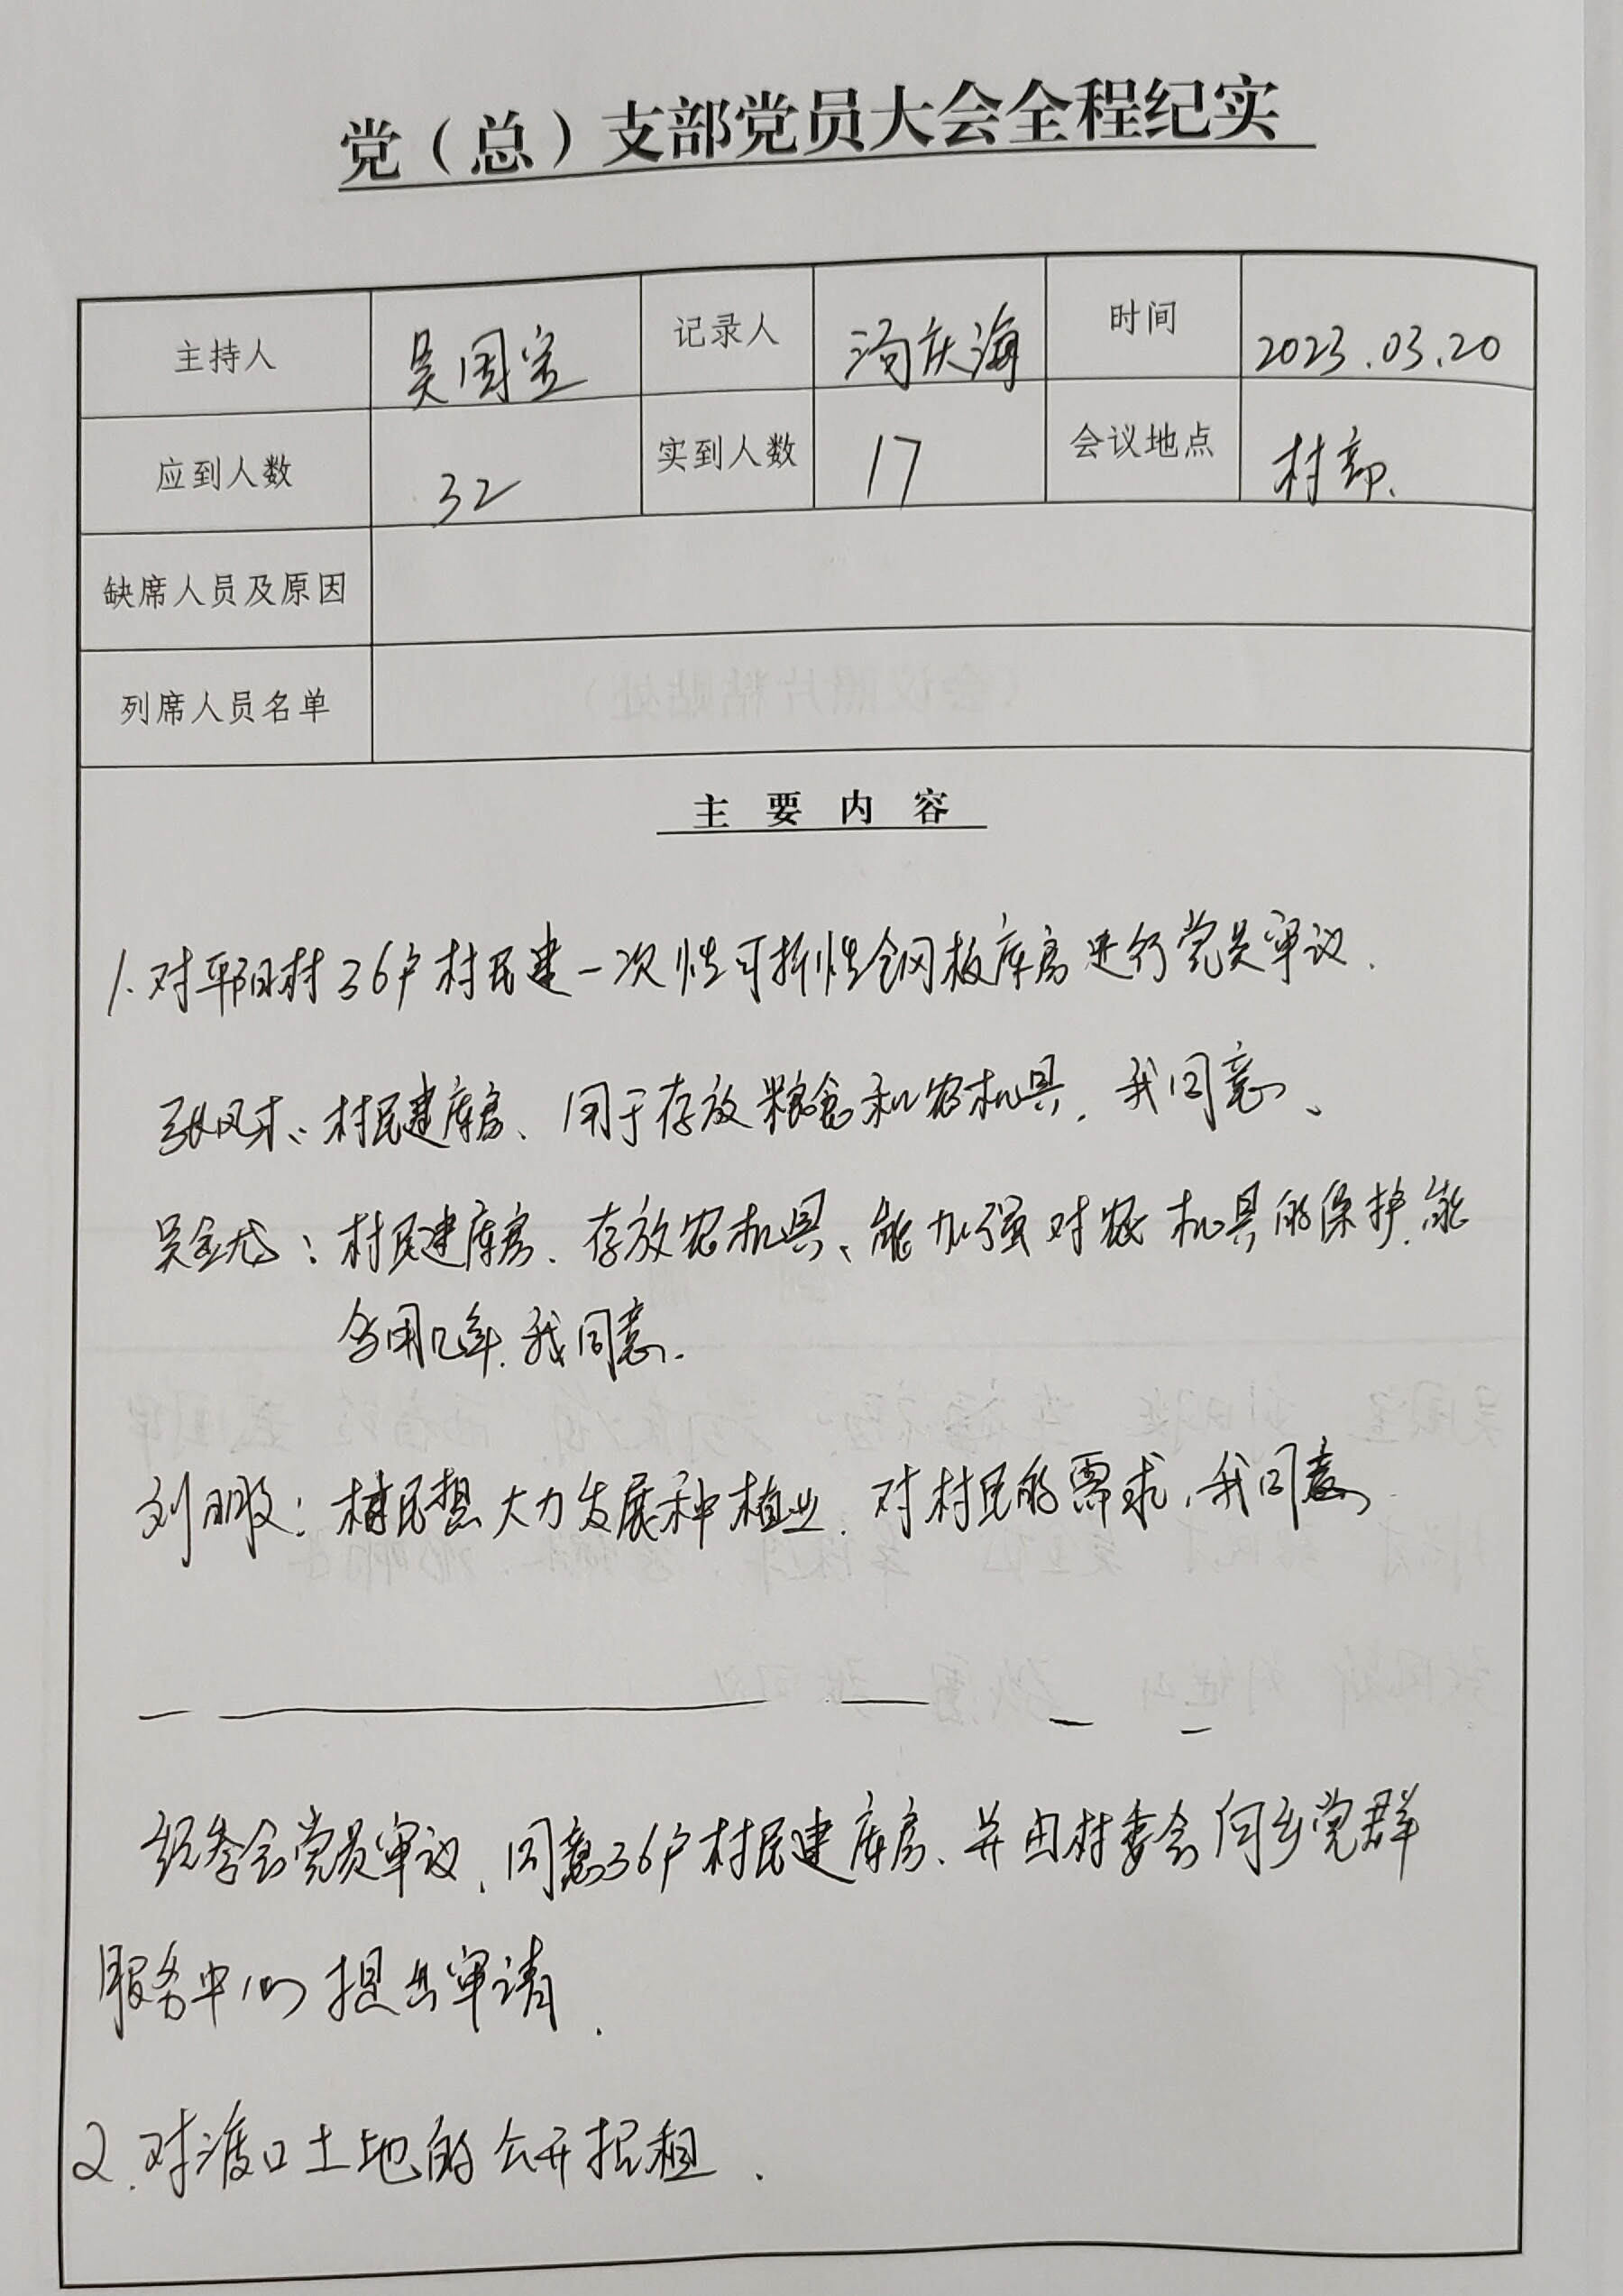 党（总）支部党员大会全程纪实
主持人 吴国宝 记录人 汤庆海 时间 2023.03.20
应到人数 32 实到人数 17 会议地点 村部.
缺席人员及原因
列席人员名单
主要内容
1.对平阳村36户村民建一次性可拆性钢板库房进行党员审议.
张凤才：村民建库房、用于存放粮食和农机具，我同意、
吴金龙：村民建库房、存放农机具、能加强对农机具的保护.能
多用几年.我同意.
刘明股：村民想大力发展种植业.对村民的需求，我同意.
经参会党员审议、同意36户村民建库房、并由村委会向乡党群
服务中心提出审请.
2.对渡口土地的公开招租.